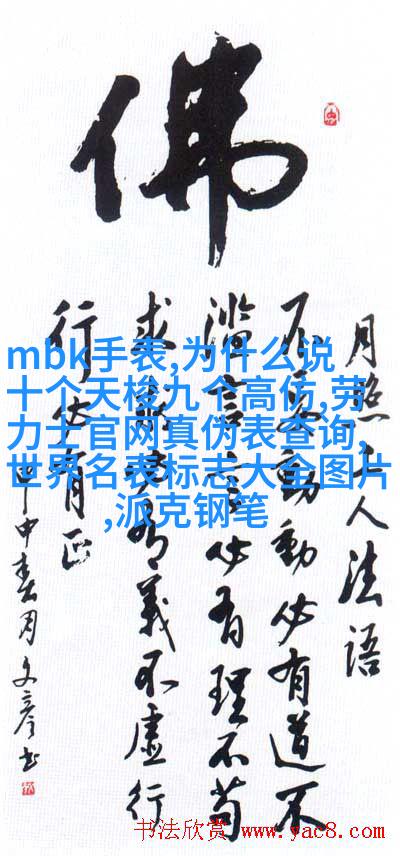 佛
月照上人法語
不妄動動必有道不
濫言言必有理不苟
求求必有義不虛行
行必有正
甲申春月文彥书
mbk手表,为什么说
十个天梭九个高仿,劳
力士官网真伪表查询,
世界名表标志大全图片
,派克钢笔
书法欣赏 www.yac8.com